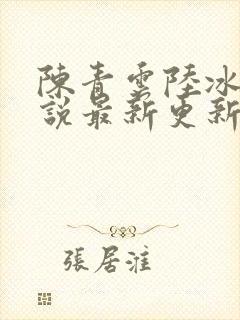 陳青雲陸冰
說最新更新
張居淮